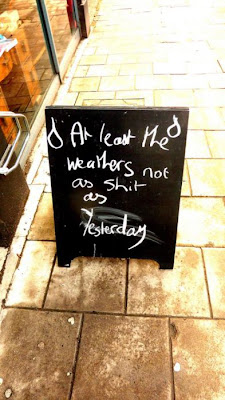 At least the
weathers not
as shit
as
Yesterday